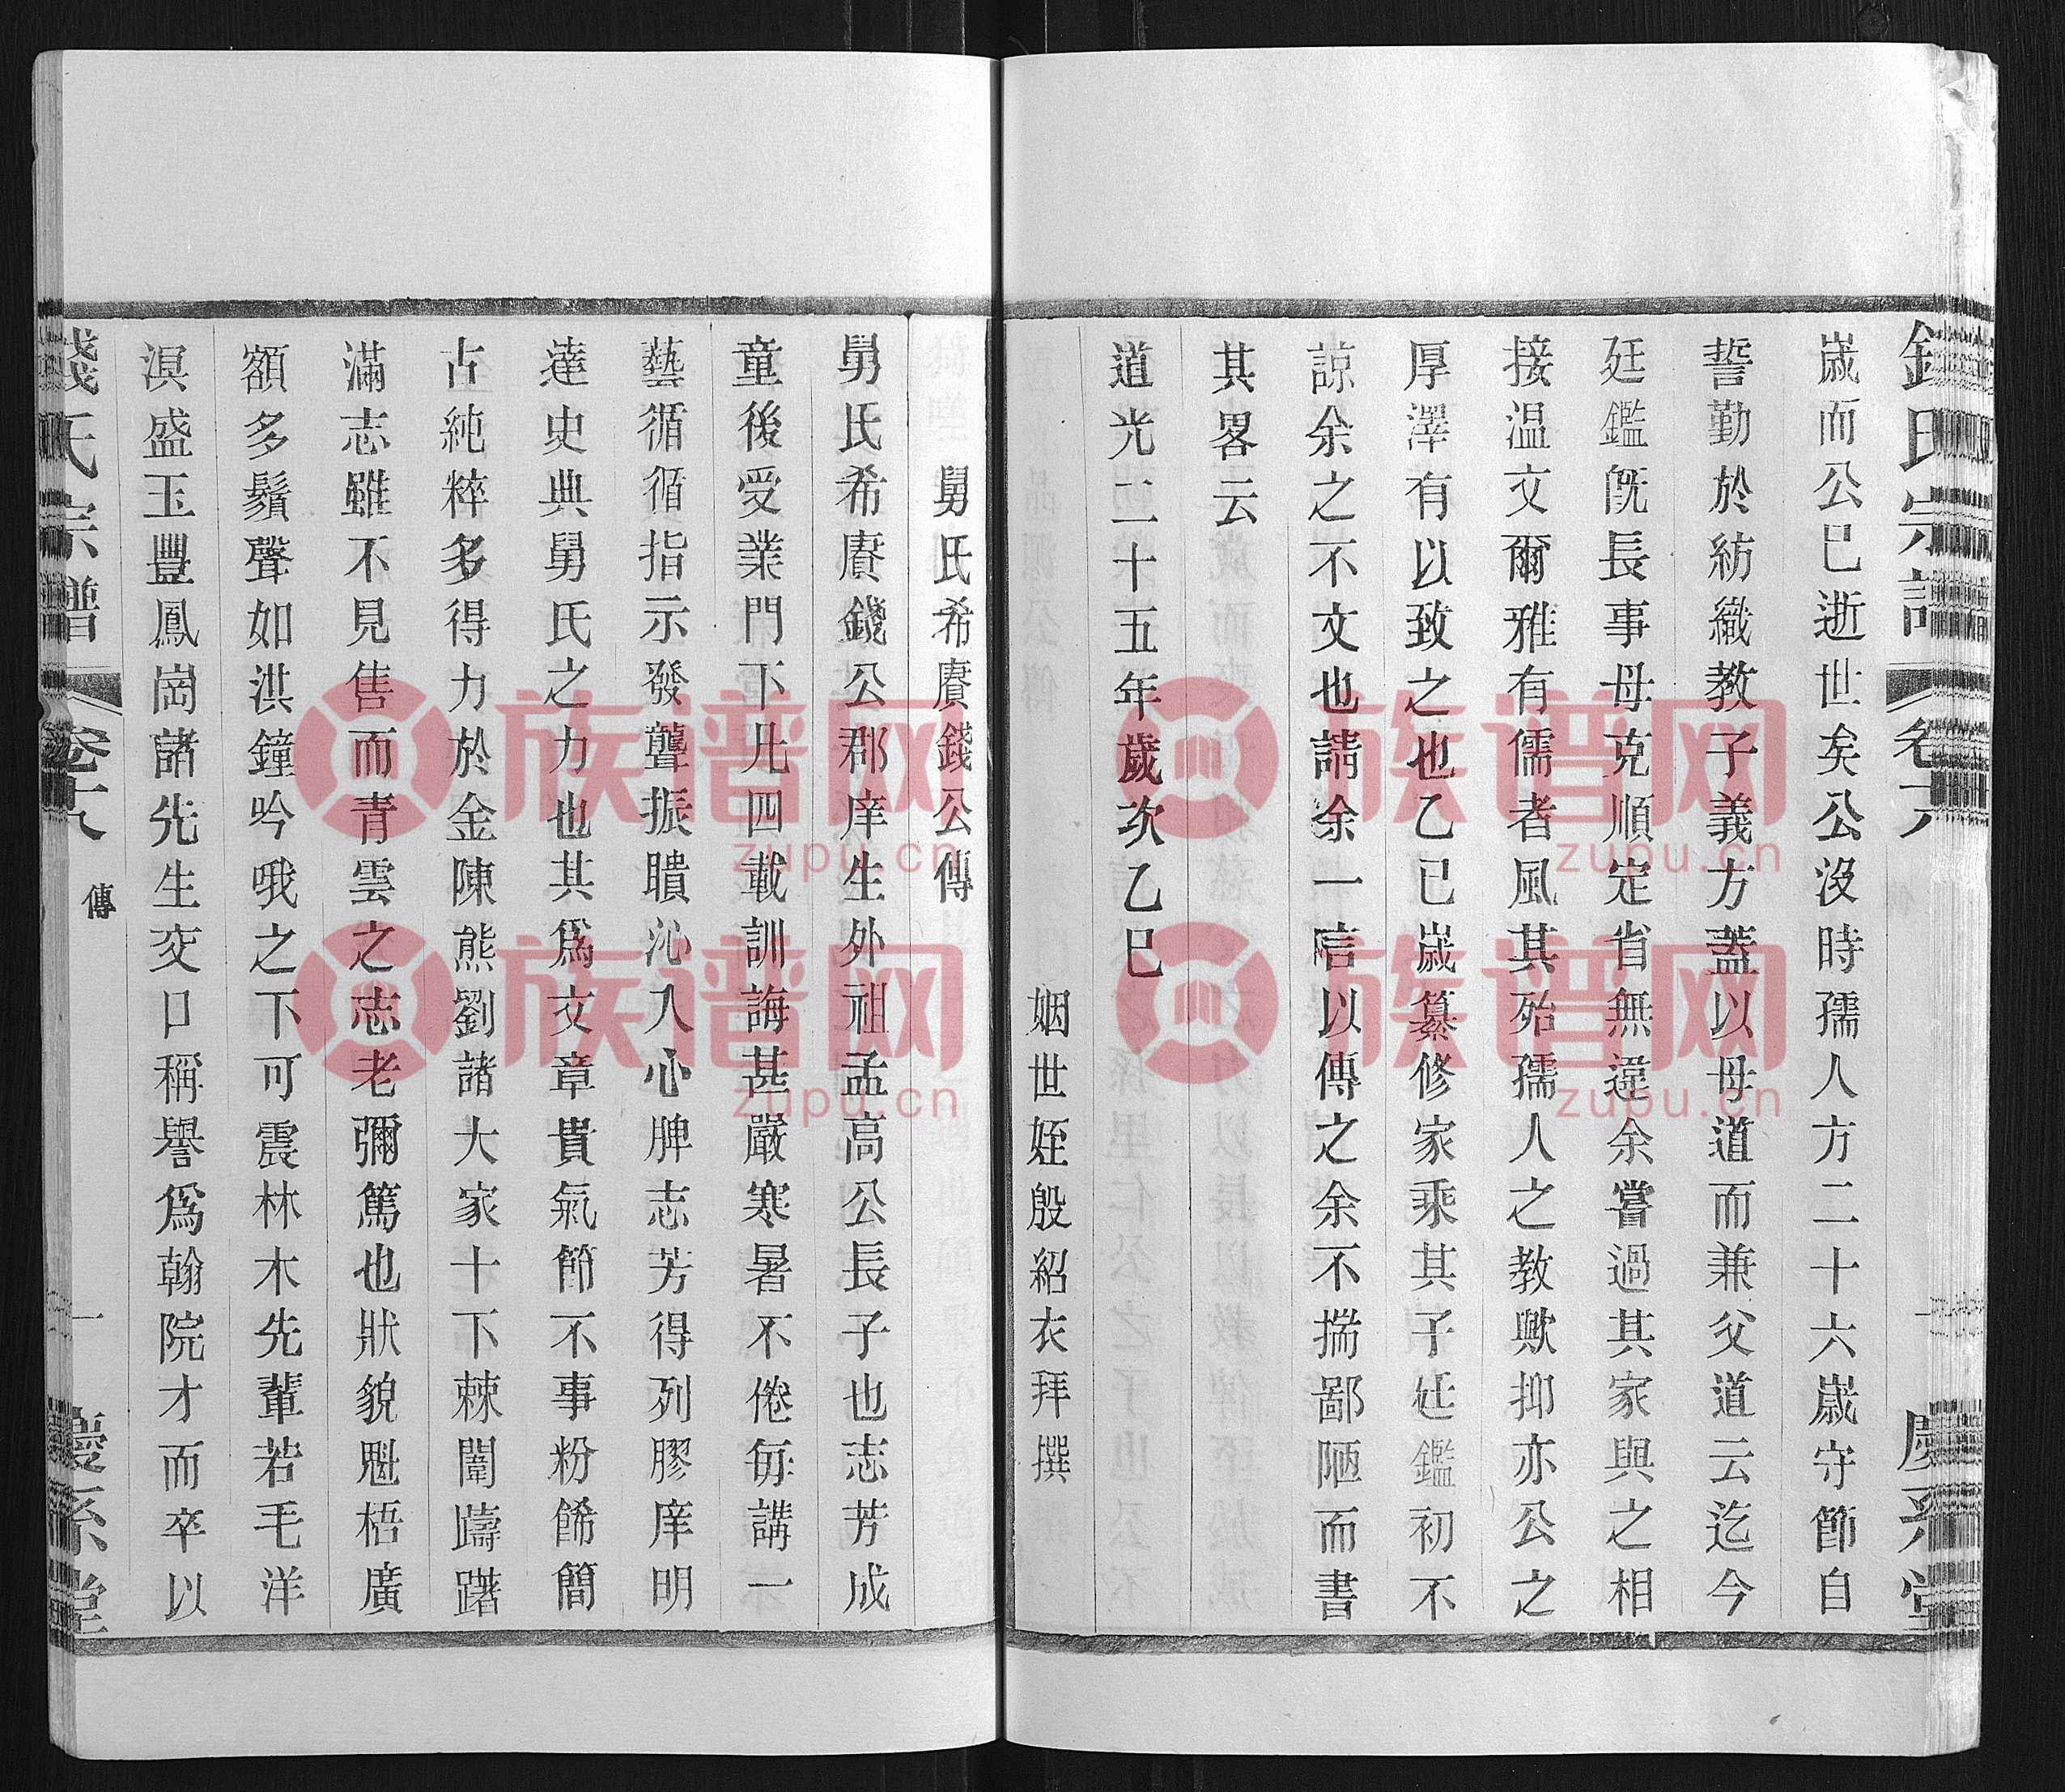 歲而公已逝世矣公沒時孺人方二十六歲守節自
誓勤於紡織教子義方蓋以母道而兼父道云迄今
廷鑑旣長事母克順定省無違余嘗過其家與之相
接温文爾雅有儒者風其殆孺人之教歟抑亦公之
厚澤有以致之也乙巳歲纂修家乘其子廷鑑初不
諒余之不文也請余一言以傳之余不揣鄙陋而書
其畧云
道光二十五年歲次乙巳
姻世姪殷紹衣拜撰
舅氏希賡錢公傳
舅氏希賡錢公郡庠生外祖孟高公長子也志芳成
童後受業門下凡四載訓誨甚嚴寒暑不倦每講一
藝循循指示發聾振聵沁人心脾志芳得列膠庠明
達史典舅氏之力也其爲文章貴氣節不事粉餙簡
古純粹多得力於金陳熊劉諸大家十下棘闈躊躇
滿志雖不見售而青雲之志老彌篤也狀貌魁梧廣
額多鬚聲如洪鐘吟哦之下可震林木先輩若毛洋
溟盛玉豐鳳崗諸先生交口稱譽爲翰院才而卒以
錢氏宗譜
卷十八
傳
一
慶系堂
族谱网
zupu.cn
族谱网
zupu.cn
族谱网
zupu.cn
族谱网
zupu.cn